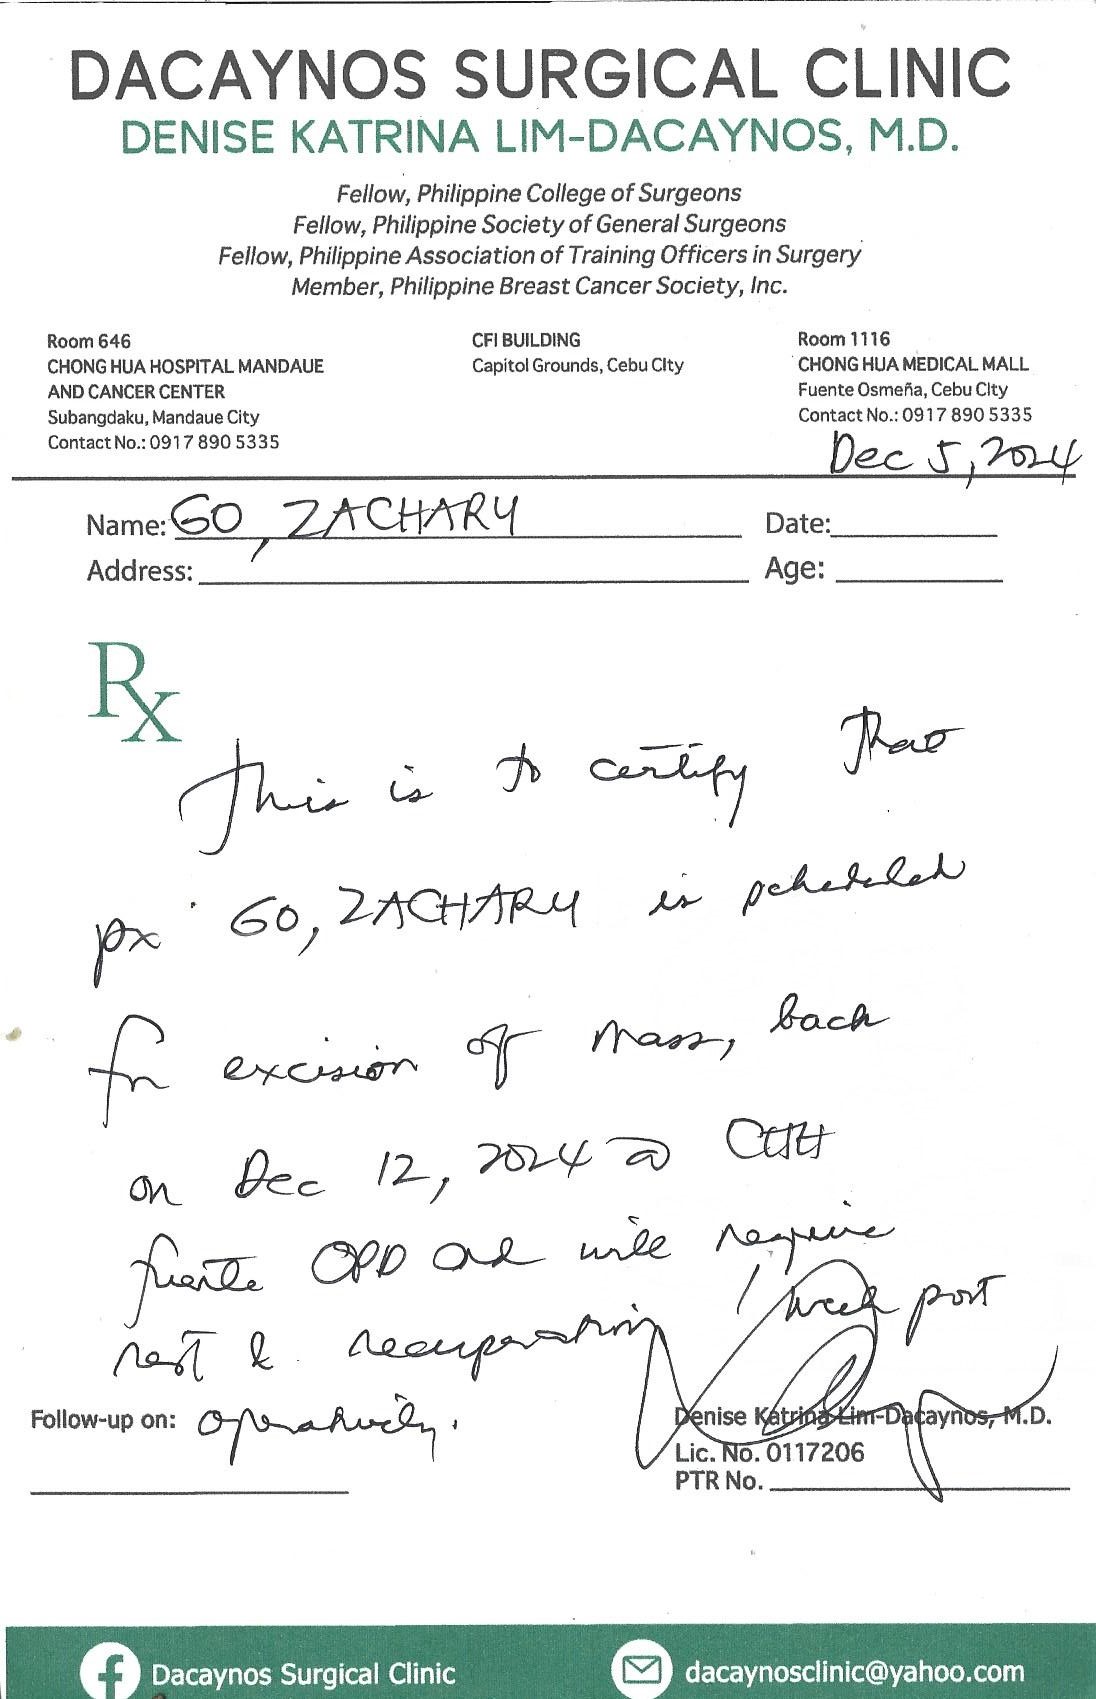 DACAYNOS SURGICAL CLINIC
DENISE KATRINA LIM-DACAYNOS, M.D.
Fellow, Philippine College of Surgeons
Fellow, Philippine Society of General Surgeons
Fellow, Philippine Association of Training Officers in Surgery
Member, Philippine Breast Cancer Society, Inc.
Room 646
CHONG HUA HOSPITAL MANDAUE
AND CANCER CENTER
Subangdaku, Mandaue City
Contact No.: 0917 890 5335
CFI BUILDING
Capitol Grounds, Cebu CIty
Room 1116
CHONG HUA MEDICAL MALL
Fuente Osmeña, Cebu CIty
Contact No.: 0917 890 5335
Dec 5, 2024
Name: GO, ZACHARY
Date:
Address:
Age:
Rx
This is to certify that
px GO, ZACHARY is scheduled
for excision of mass, back
on Dec 12, 2024 @ CHH
fuente OPD and will require
rest & recuperation 1 week post
operatively.
Follow-up on:
Denise Katrina Lim-Dacaynos, M.D.
Lic. No. 0117206
PTR No.
Dacaynos Surgical Clinic
dacaynosclinic@yahoo.com